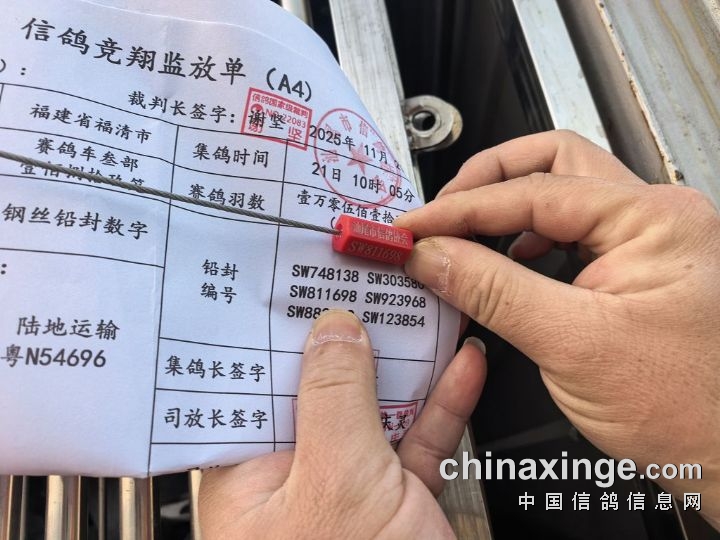 信鸽竞翔监放单（A4）
）：
裁判长签字：
谢坚
信鸽国家级裁判
福建省福清市
集鸽时间
2025年11月
21日 10时 05分
赛鸽车叁部
壹佰
赛鸽羽数
壹万零伍佰壹拾
钢丝铅封数字
铅封
编号
SW748138 SW303580
SW811698 SW923968
SW88 SW123854
汕尾市信鸽协会
SW811698
：
陆地运输
粤N54696
集鸽长签字
司放长签字
chinaxinge.com
中国信鸽信息网